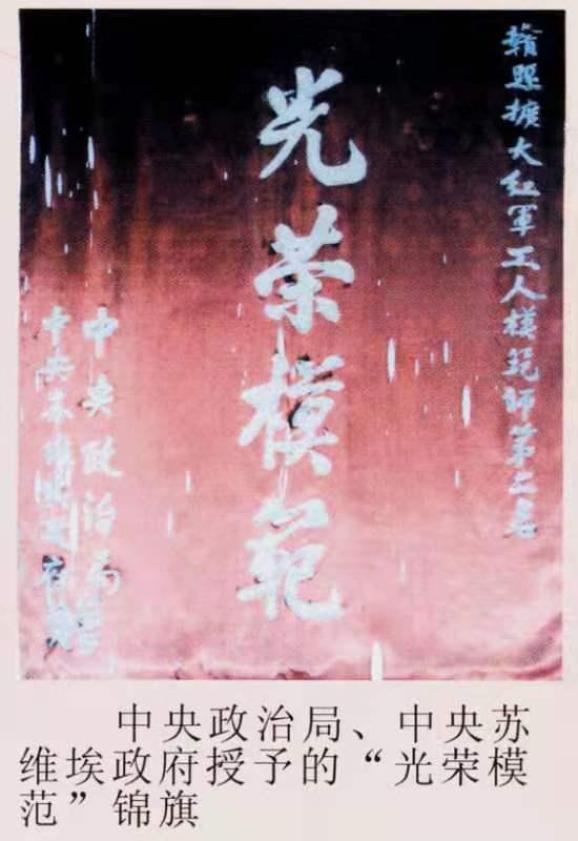 贛縣擴大紅軍工人模範師第二名
光榮模範
中央政治局
中央
中央政治局、中央苏
维埃政府授予的“光荣模
范”锦旗